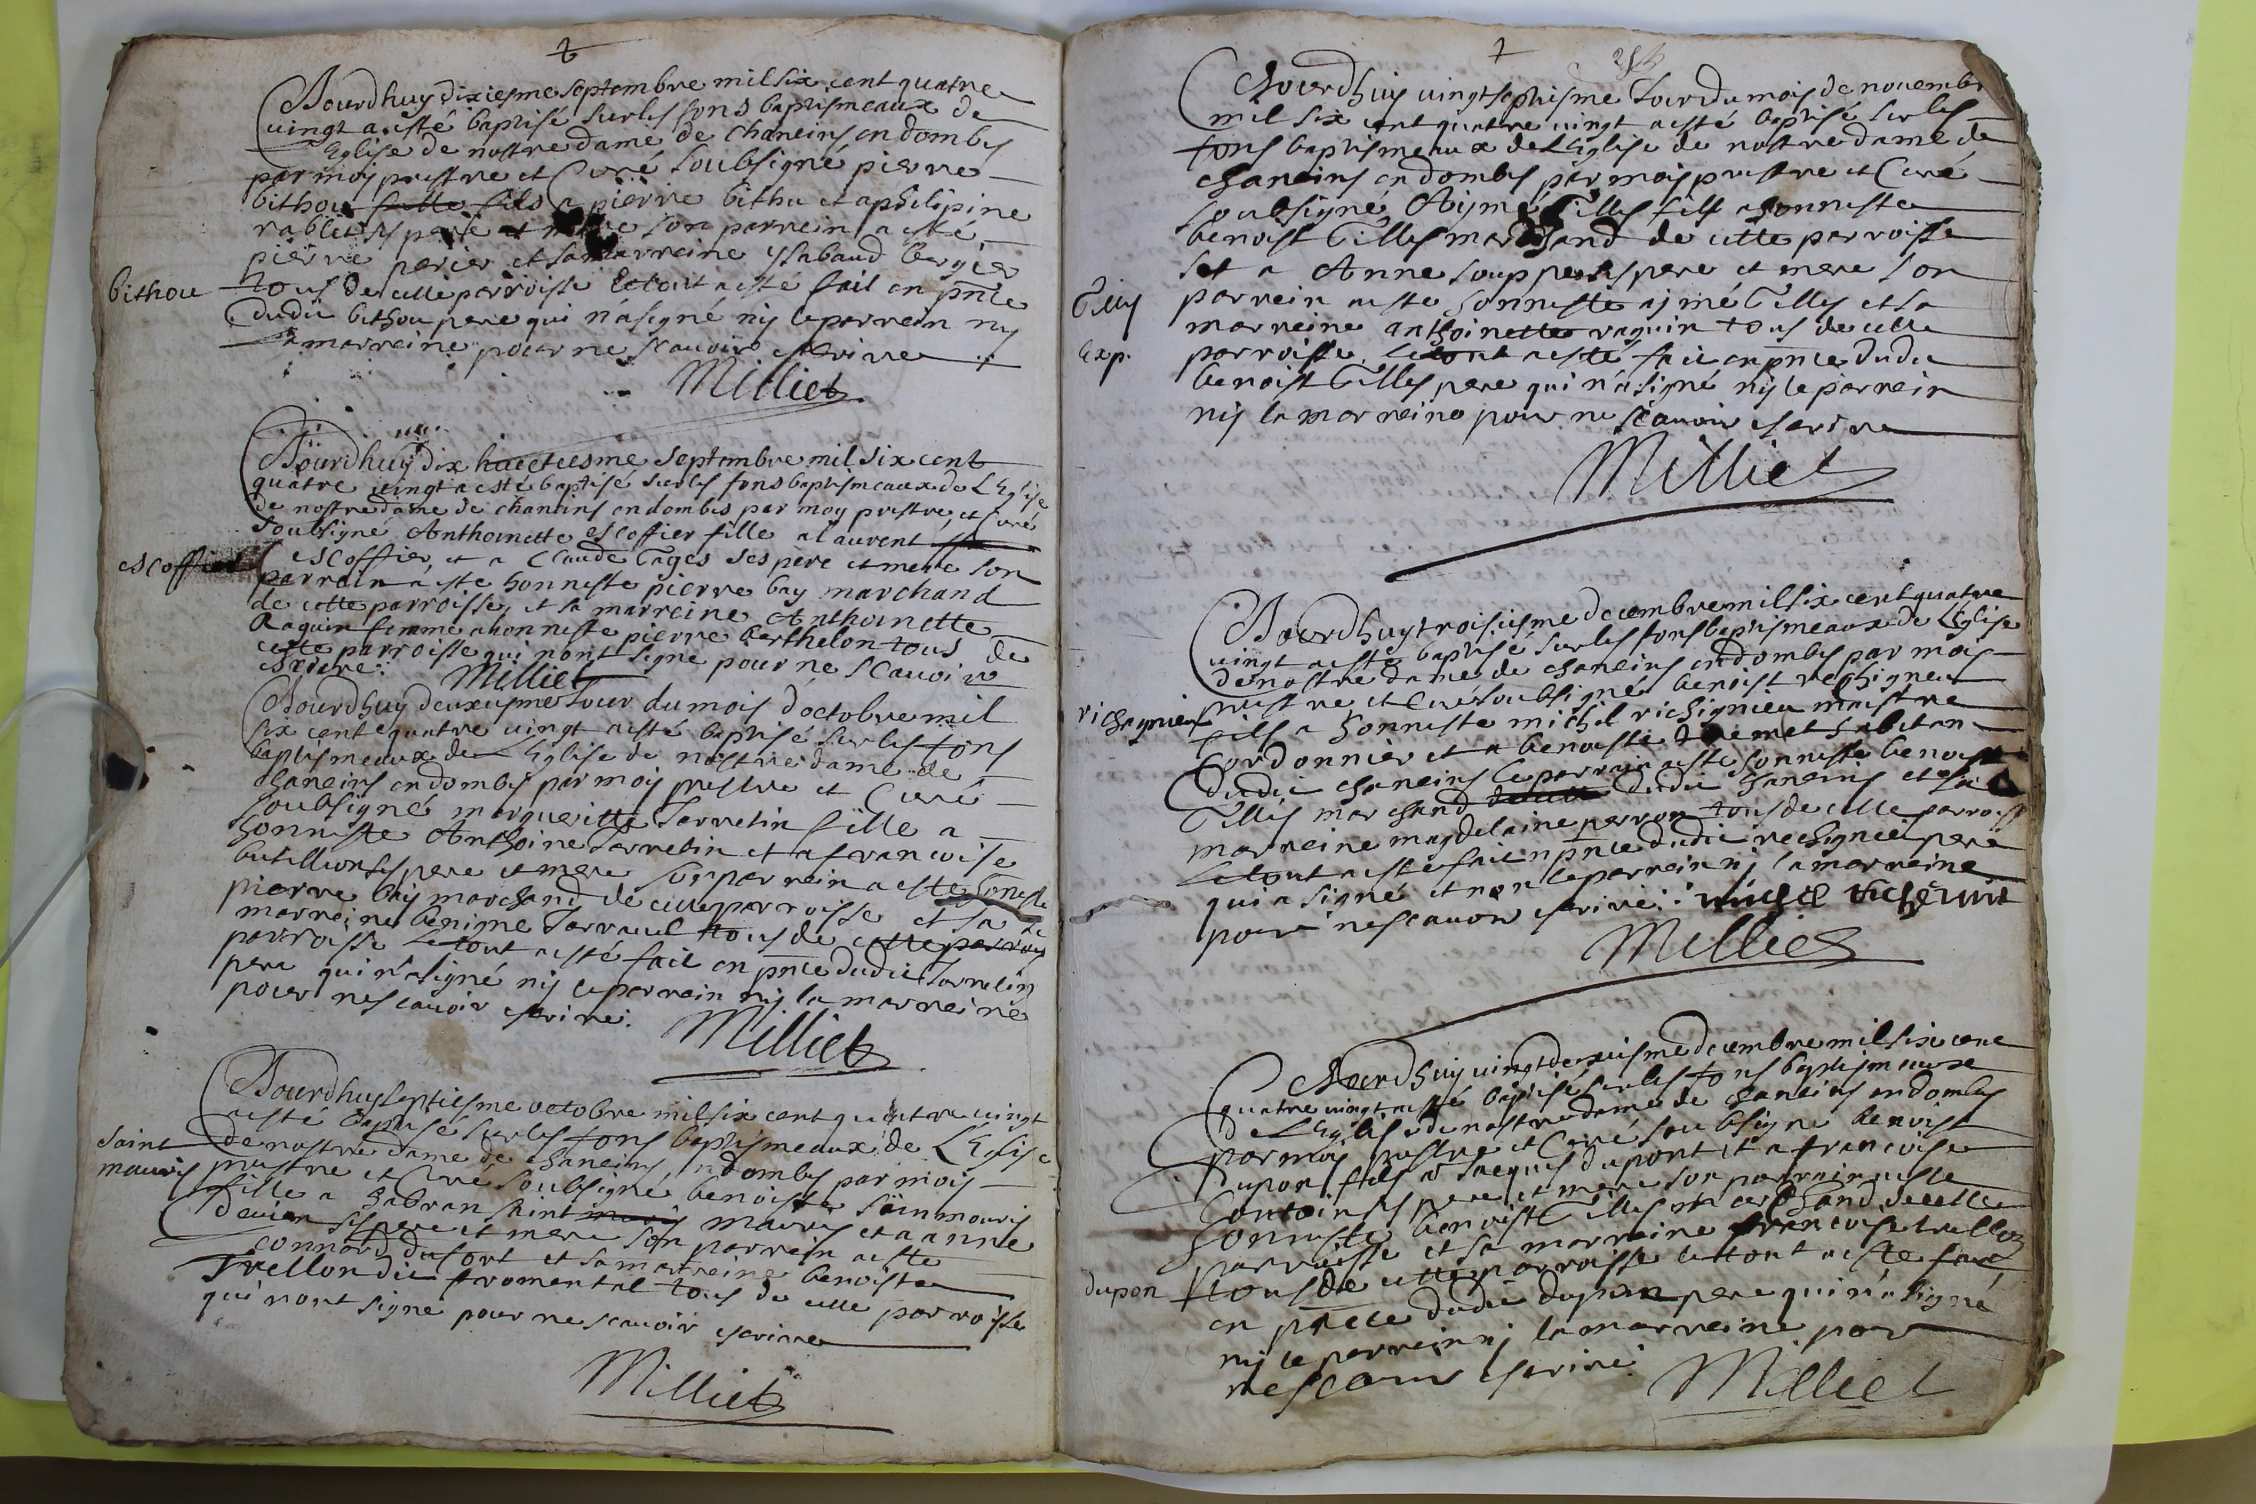 Aourdhuy dixiesme septembre mil six cent quatre
vingt a esté baptisé sur les fons baptismeaux de
L'Eglise de nostre dame de chaneins en dombes
par moy prestre et Curé soubsigné pierre
bithou fille fils a pierre bithu et a philipine
ses pere et mere son parrein a esté
pierre perier et sa marreine ysabaud bergier
bithou
tous de cette parroisse Letout a esté fait en pnce
dudit bithou pere qui n'a signé ny le parrein ny
la marreine pour ne scauoir escrire
Milliet
Aourdhuy dix huictiesme septembre mil six cent
quatre vingt a esté baptisé sur les fons baptismeaux de L'Eglise
de nostre dame de chaneins en dombes par moy prestre et Curé
soubsigné Anthoinette escoffier fille a laurent
escoffier
escoffier et a Claude Tages ses pere et mere son
parrein a esté honneste pierre bay marchand
de cette parroisse et sa marreine Anthoinette
Raquin femme a honneste pierre berthelon tous de
cette parroisse qui n'ont signe pour ne scauoir
escrire
Milliet
Aourdhuy deuxiesme Jour du mois d'octobre mil
six cent quatre vingt a esté baptisé sur les fons
baptismeaux de L'Eglise de nostre dame de
chaneins en dombes par moy prestre et Curé
soubsigné margueritte Jarretin fille a
honneste Anthoine Jarretin et a francoise
butillion ses pere et mere son parrein a este honeste
pierre bay marchand de cette parroisse et sa
marreine benime tous de cette parrois
parroisse Letout a esté fait en pnce dudit Jarretin
pere qui n'a signé ny le parrein ny la marreine
pour ne scauoir escrire
Milliet
Aourdhuy septiesme octobre mil six cent quatre vingt
a esté baptisé sur les fons baptismeaux de L'Eglise
saint
mauris
de nostre dame de chaneins en dombes par moy
prestre et Curé soubsigné benoiste sainmouris
fille a gabran saint mauris et a anne
ses pere et mere son parrein a esté
connard dufort et sa marreine benoiste
trellon dit fromental tous de cette parroisse
qui n'ont signe pour ne scauoir escrire
Milliet
Aourdhuy vingtseptiesme Jour du mois de novembre
mil six cent quatre vingt a esté baptisé sur les
fons baptismeaux de L'Eglise de nostre dame de
chaneins en dombes par moy prestre et Curé
soubsigné Aymé Tilles fils a honneste
benoist Tilles marchand de cette parroisse
et a Anne souppe ses pere et mere son
Tilly
parrein a esté honneste aymé Tilles et sa
marreine anthoinette raquin tous de cette
Exp.
parroisse Letout a esté fait en pnce dudit
benoist Tilles pere qui n'a signé ny le parrein
ny la marreine pour ne scauoir escrire
Milliet
Aourdhuy troisiesme decembre mil six cent quatre
vingt a esté baptisé sur les fons baptismeaux de L'Eglise
de nostre dame de chaneins en dombes par moy
prestre et Curé soubsigné benoist rechigneu
richagnieu
fils a honneste michel richignieu maistre
Cordonnier et a benoiste habitan
dudit chaneins Le parrein a esté honneste benoist
Tilles marchand dudit chaneins et sa
marreine magdelaine perron tous de cette parroisse
Letout a esté fait en pnce dudit rechignieu pere
qui a signé et non le parrein ny la marreine
pour ne scauoir escrire
Milliet
Aourdhuy vingtdeuxiesme decembre mil six cent
quatre vingt a esté baptisé sur les fons baptismeaux
de L'Eglise de nostre dame de chaneins en dombes
par moy prestre et Curé soubsigné benoist
dupont fils a Jacques dupont et a francoise
ses pere et mere son parrein a esté
honneste benoist Tilles marchand de cette
parroisse et sa marreine francoise trellon
dupon
tous de cette parroisse letout a esté fait
en pnce dudit dupon pere qui n'a signé
ny le parrein ny la marreine pour
ne scauoir escrire
Milliet